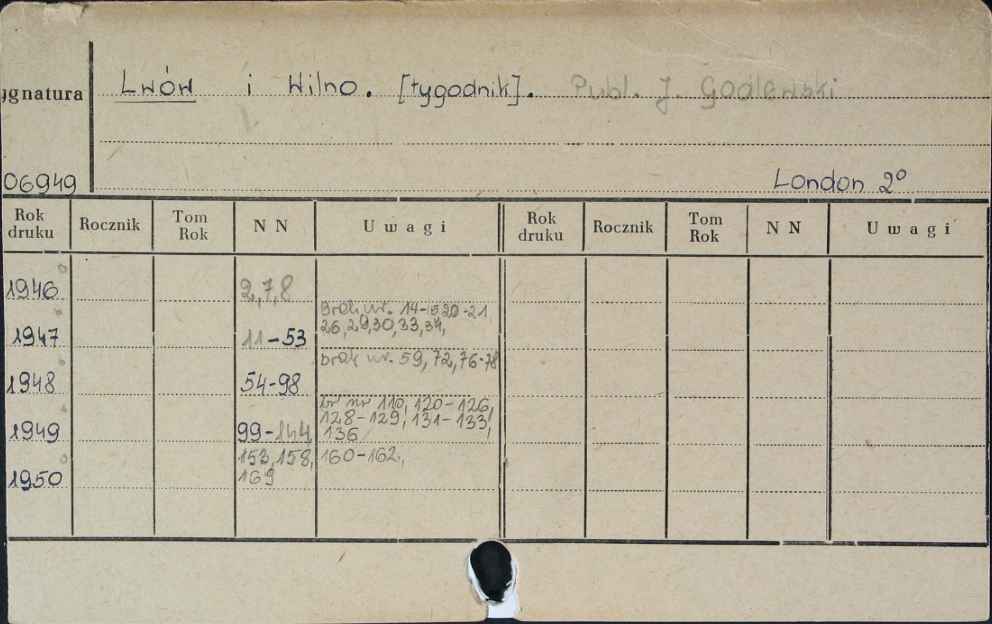 ygnatura
Lwów i Wilno. [tygodnik]. Publ. J. Godlewski
06949
London 2°
Rok druku Rocznik Tom Rok N N Uwagi Rok druku Rocznik Tom Rok N N Uwagi
1946 2,7,8
brak nr. 14-15 20-21
26,29,30,33,34,
1947 11-53
brak nr. 59, 72, 76-78
1948 54-98
br nr 110, 120-126,
128-129, 131-133,
1949 99-144 136
153, 158, 160-162,
1950 169